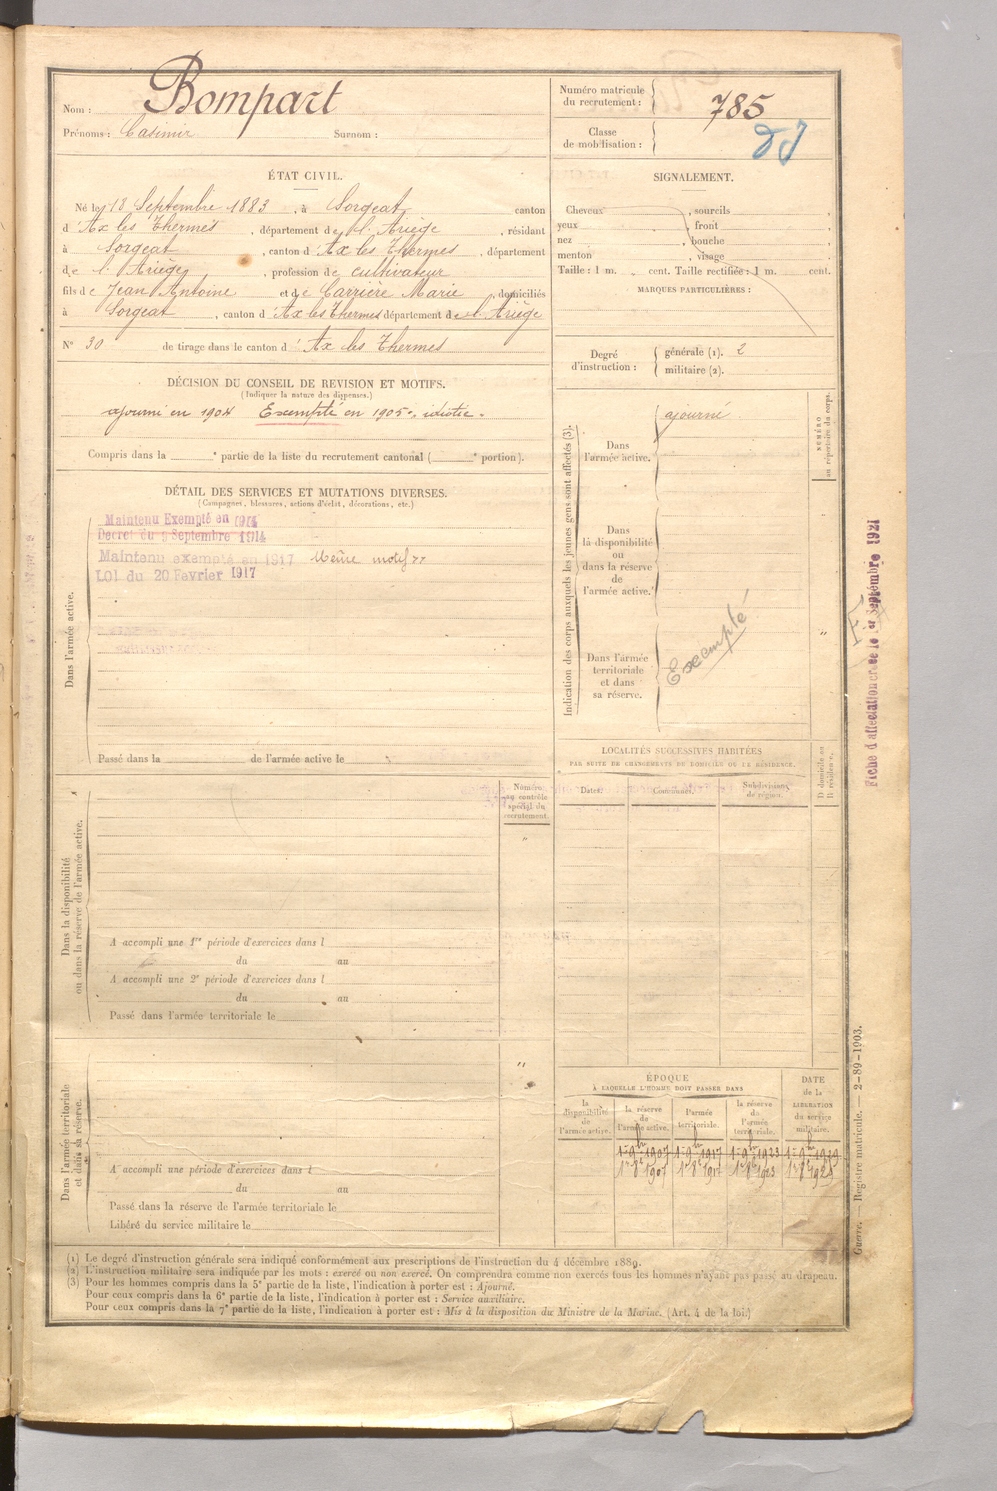 Nom : Bompart
Prénoms : Casimir Surnom :
Numéro matricule du recrutement : 785
Classe de mobilisation :
ÉTAT CIVIL.
Né le 18 Septembre 1883, à Sorgeat, canton
d' Ax les Thermes, département de l'Ariège, résidant
à Sorgeat, canton d' Ax les Thermes, département
de l'Ariège, profession de cultivateur
fils de Jean Antoine et de Carrière Marie, domiciliés
à Sorgeat, canton d' Ax les Thermes département de l'Ariège
N° 30 de tirage dans le canton d' Ax les Thermes
SIGNALEMENT.
Cheveux , sourcils ,
yeux , front ,
nez , bouche ,
menton , visage
Taille : 1 m. cent. Taille rectifiée : 1 m. cent.
MARQUES PARTICULIÈRES :
Degré d'instruction : générale (1). 2
militaire (2).
DÉCISION DU CONSEIL DE REVISION ET MOTIFS.
(Indiquer la nature des dispenses.)
ajourné en 1904 Exempté en 1905, idiotie.
Compris dans la e partie de la liste du recrutement cantonal ( e portion).
DÉTAIL DES SERVICES ET MUTATIONS DIVERSES.
(Campagnes, blessures, actions d'éclat, décorations, etc.)
Maintenu Exempté en 1914
Decret du 9 Septembre 1914
Maintenu exempté en 1917 Même motif
LOI du 20 Fevrier 1917
Dans l'armée active.
Passé dans la de l'armée active le
Indication des corps auxquels les jeunes gens sont affectés (3).
Dans l'armée active.
ajourné
Dans la disponibilité ou dans la réserve de l'armée active.
Dans l'armée territoriale et dans sa réserve.
Exempté
NUMÉRO au répertoire du corps.
Fiche d'affectation créée le 1er Septembre 1921
LOCALITÉS SUCCESSIVES HABITÉES
PAR SUITE DE CHANGEMENTS DE DOMICILE OU DE RÉSIDENCE.
Dates. Communes. Subdivisions de région. D domicile ou R résidence.
Numéro au contrôle spécial du recrutement.
Dans la disponibilité ou dans la réserve de l'armée active.
A accompli une 1re période d'exercices dans l
du au
A accompli une 2e période d'exercices dans l
du au
Passé dans l'armée territoriale le
Dans l'armée territoriale et dans sa réserve.
A accompli une période d'exercices dans l
du au
Passé dans la réserve de l'armée territoriale le
Libéré du service militaire le
ÉPOQUE
À LAQUELLE L'HOMME DOIT PASSER DANS
DATE de la LIBÉRATION du service militaire.
la disponibilité de l'armée active.
la réserve de l'armée active.
l'armée territoriale.
la réserve de l'armée territoriale.
1er 9bre 1907 1er 9bre 1917 1er 9bre 1923 1er 9bre 1929
1er 8bre 1907 1er 8bre 1917 1er 8bre 1923 1er 8bre 1929
Guerre. — Registre matricule. — 2-89-1903.
(1) Le degré d'instruction générale sera indiqué conformément aux prescriptions de l'instruction du 4 décembre 1889.
(2) L'instruction militaire sera indiquée par les mots : exercé ou non exercé. On comprendra comme non exercés tous les hommes n'ayant pas passé au drapeau.
(3) Pour les hommes compris dans la 5e partie de la liste, l'indication à porter est : Ajourné.
Pour ceux compris dans la 6e partie de la liste, l'indication à porter est : Service auxiliaire.
Pour ceux compris dans la 7e partie de la liste, l'indication à porter est : Mis à la disposition du Ministre de la Marine. (Art. 4 de la loi.)